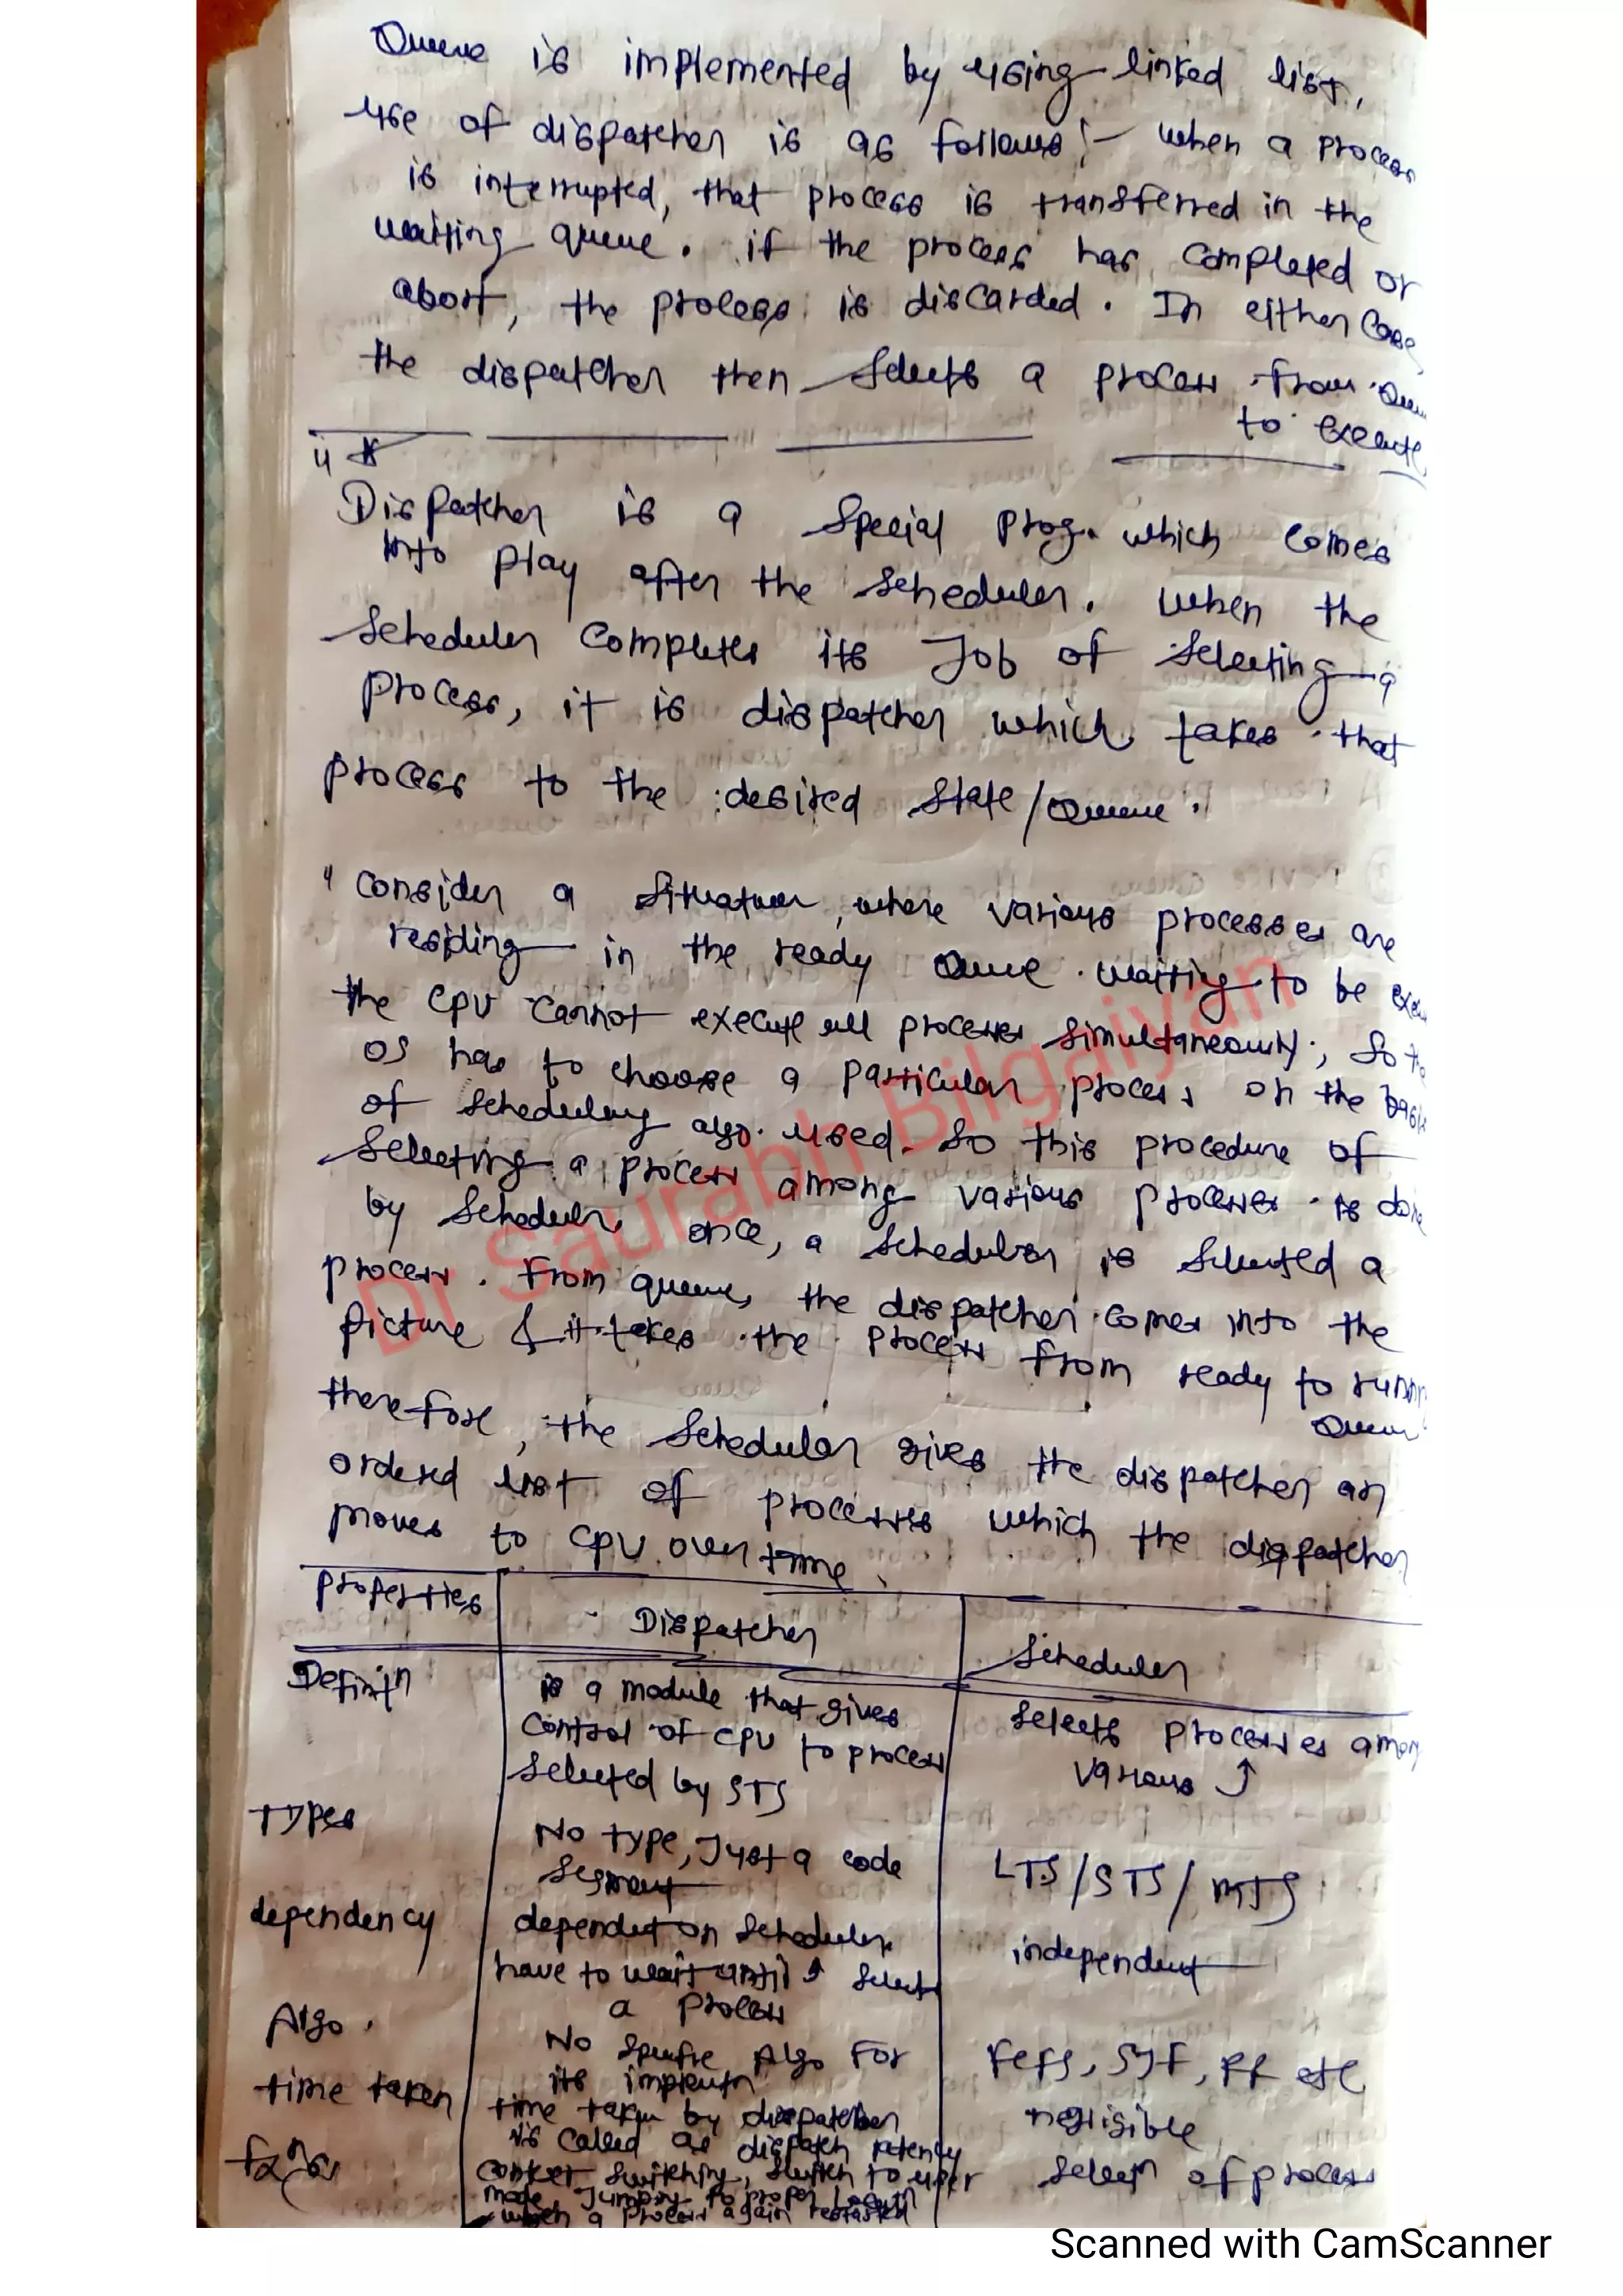 Queue is implemented by using linked list,
use of dispatcher is as follows :- when a process
is interrupted, that process is transferred in the
waiting queue. if the process has completed or
abort, the process is discarded. In either case
the dispatcher then selects a process from
to execute
4 *
Dispatcher is a special prog. which comes
into play after the scheduler. when the
scheduler completes its Job of selecting a
process, it is dispatcher which takes that
process to the desired state/Queue.
" consider a situation, where various processes are
residing in the ready Queue waiting to be
the CPU cannot execute all processes simultaneously, So
OS has to choose a particular process on the basis
of scheduling algo. used. So this procedure of
selecting a process among various processes is done
by scheduler, once, a scheduler is selected a
process. from queue, the dispatcher comes into the
picture & it takes the process from ready to
Queue
therefore, the scheduler gives the dispatcher an
ordered list of processes which the dispatcher
moves to CPU over time.
properties Dispatcher Scheduler
Definitn is a module that gives selects processes among
control of CPU to process various ↑
selected by STS
Types No type, Just a code LTS/STS/MTS
segment
dependency dependent on scheduler. independent
have to wait until ↑ select
a process
Algo. No specific Algo For FCFS, SJF, RR etc
its implentn
time taken time taken by dispatcher negligible
is called as dispatch latency
fxns context switching, switch to user selectn of process
mode Jumping to proper locatn
when a process again restarted
Dr Saurabh Bilgaiyan
Scanned with CamScanner